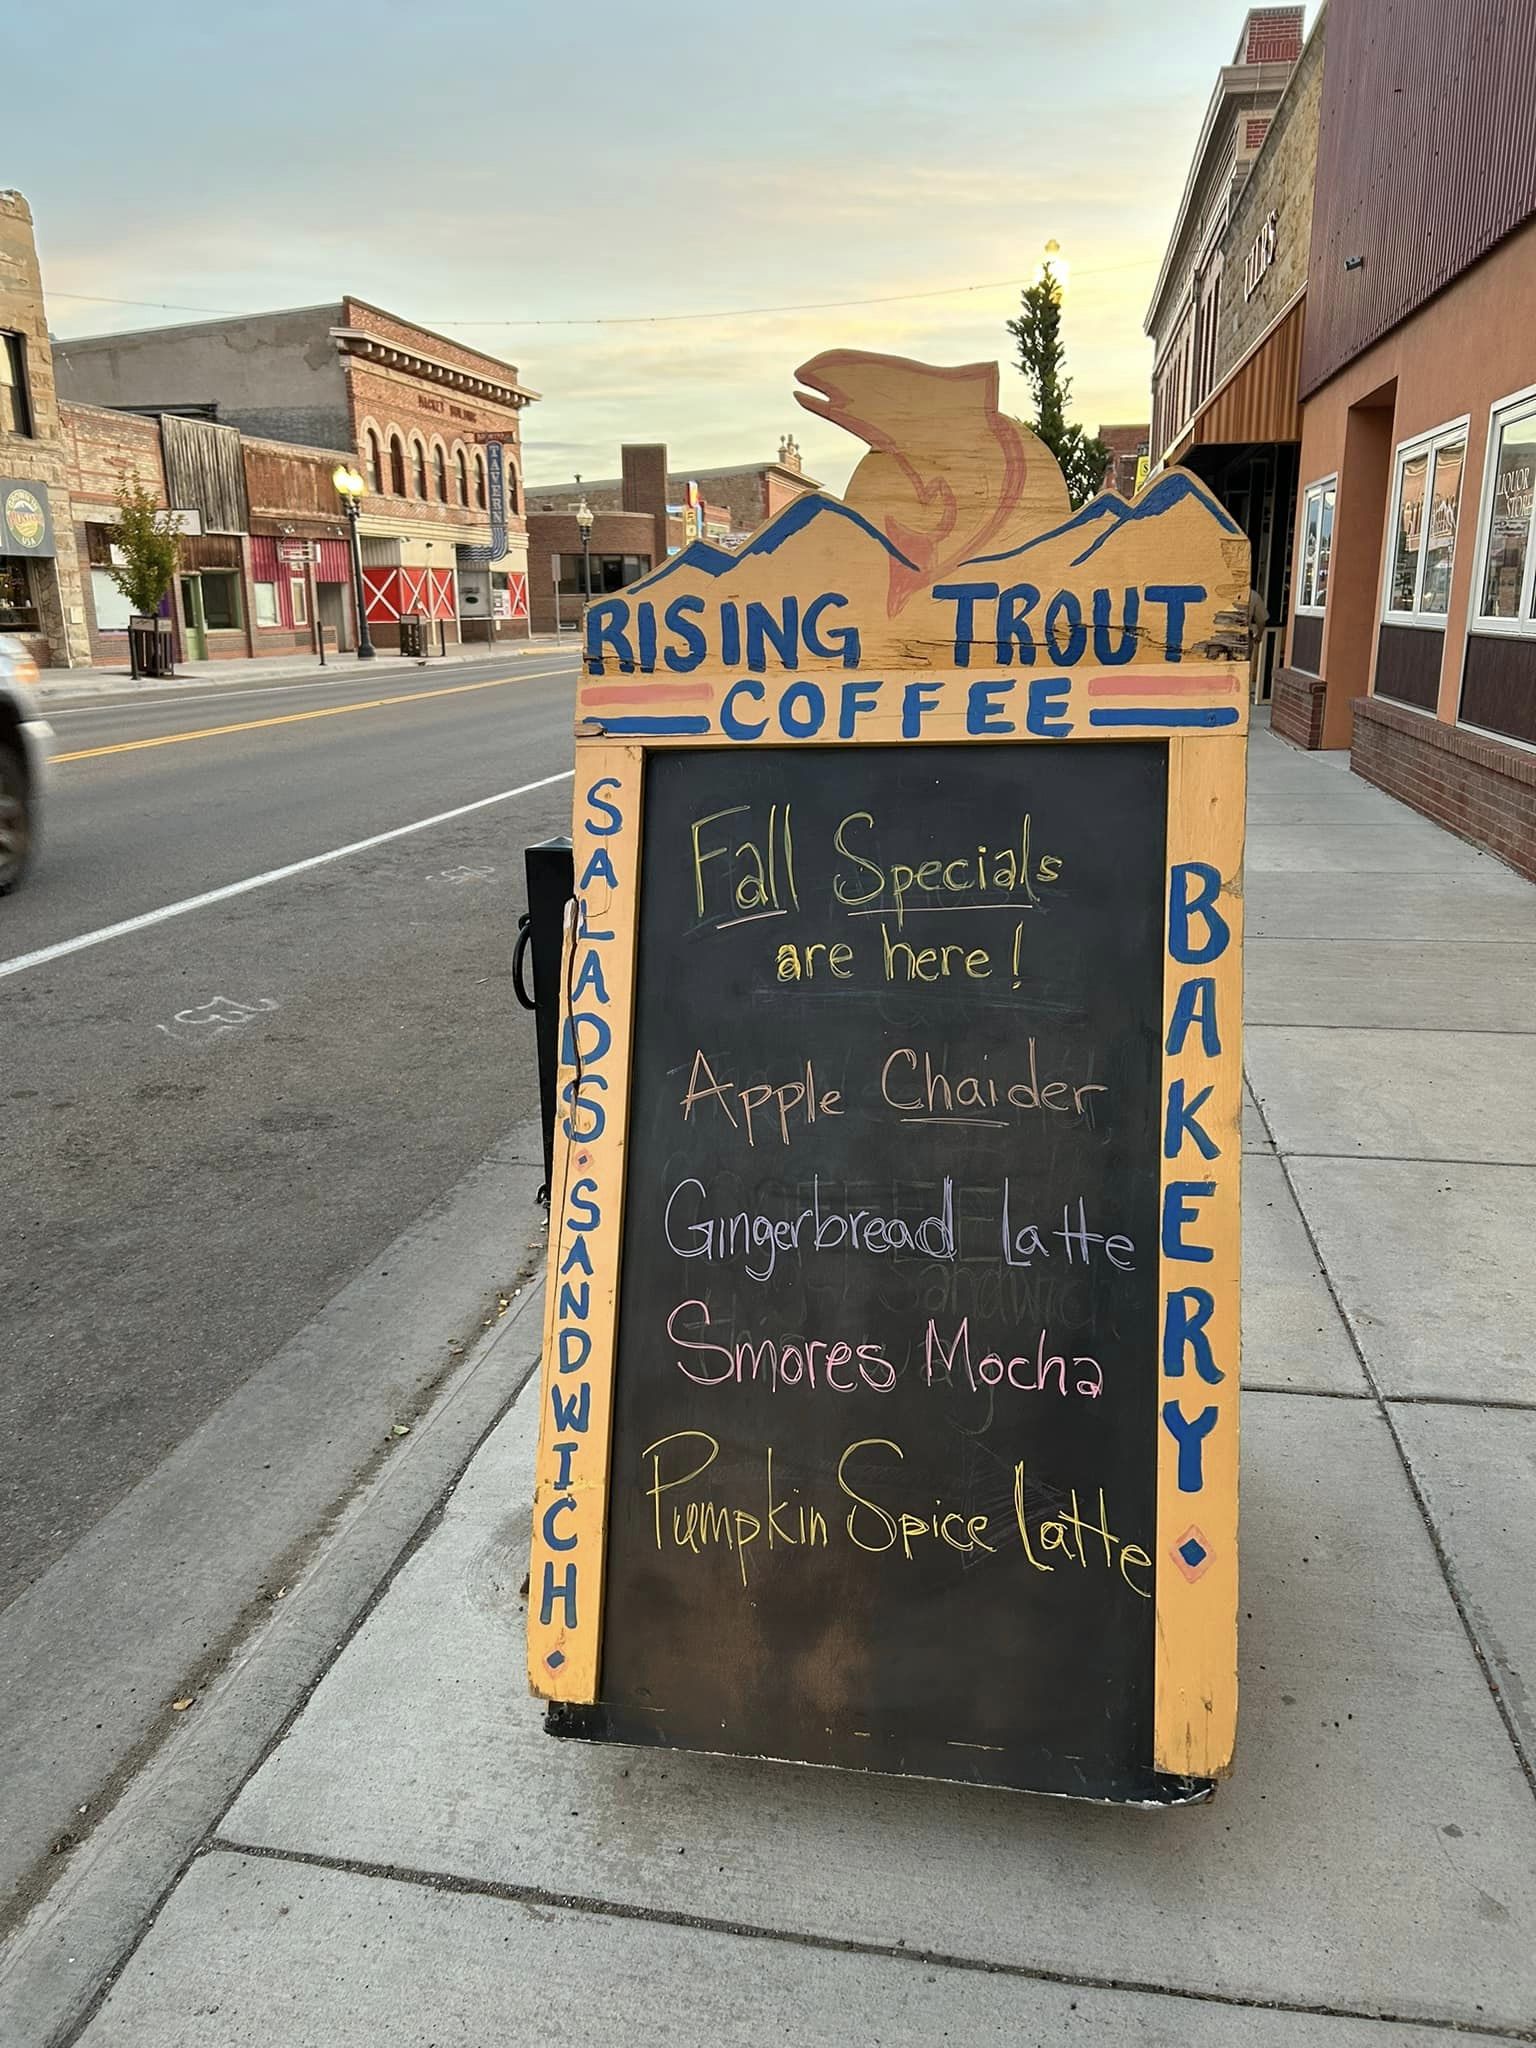 RISING TROUT
COFFEE
SALADS · SANDWICH
BAKERY
Fall Specials
are here!
Apple Chaider
Gingerbread Latte
Smores Mocha
Pumpkin Spice Latte
TAVERN
HACKET BUILDING
USA
LIQUOR
STORE